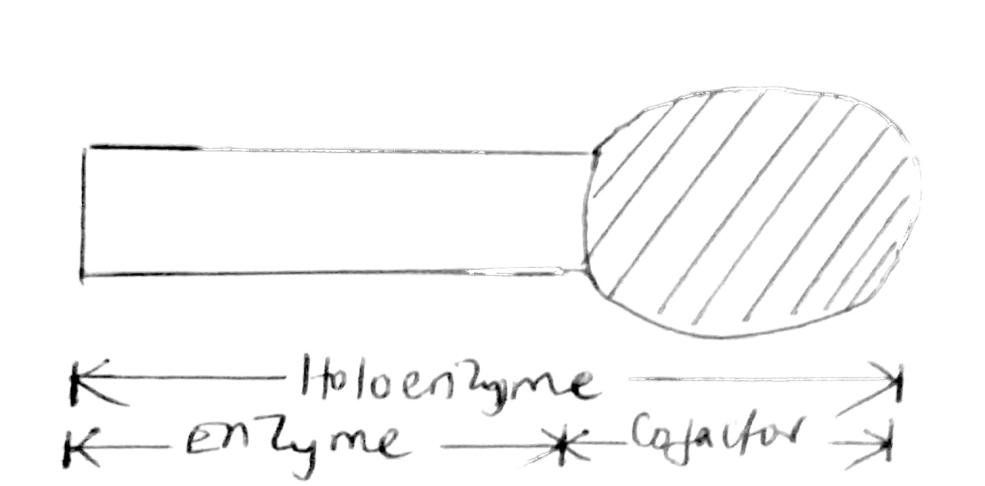 Holoenzyme
enzyme Cofactor